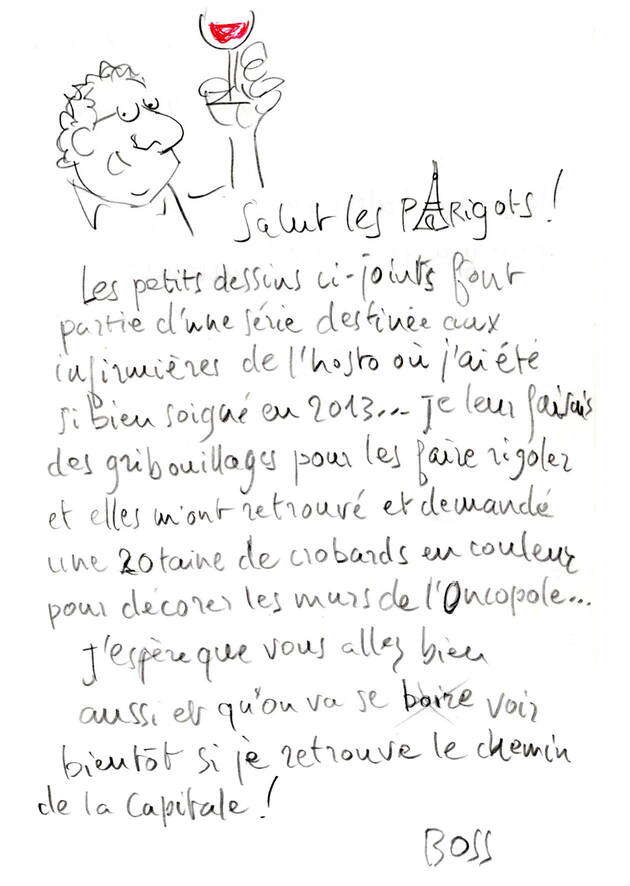 Salut les PARigots !
Les petits dessins ci-joints font
partie d'une série destinée aux
infirmières de l'hosto où j'ai été
si bien soigné en 2013... je leur faisais
des gribouillages pour les faire rigoler
et elles m'ont retrouvé et demandé
une 20taine de crobards en couleur
pour décorer les murs de l'Oncopole...
J'espère que vous allez bien
aussi et qu'on va se boire voir
bientôt si je retrouve le chemin
de la Capitale !
BOSS